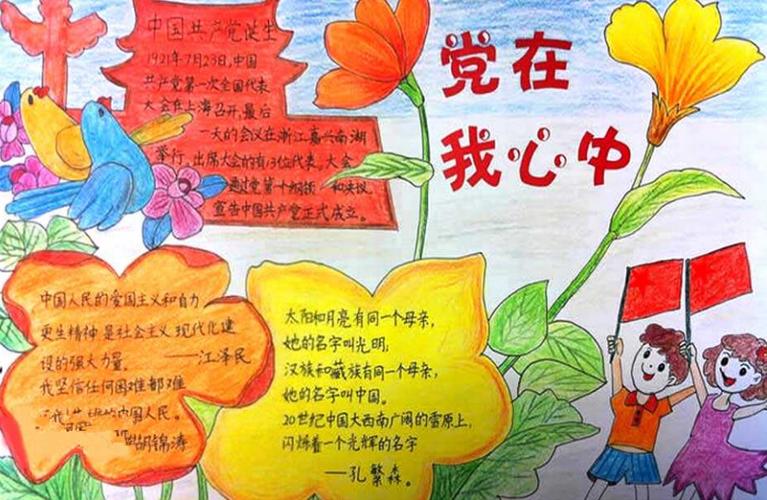 中国共产党诞生
1921年7月23日,中国
共产党第一次全国代表
大会在上海召开,最后
一天的会议在浙江嘉兴南湖
举行。出席大会的有13位代表。大会
通过党第一个纲领 和决议,
宣告中国共产党正式成立。
党在
我心中
中国人民的爱国主义和自力
更生精神是社会主义现代化建
设的强大力量。 ——江泽民
我坚信任何困难都难
的中国人民。
胡锦涛
太阳和月亮有同一个母亲,
她的名字叫光明,
汉族和藏族有同一个母亲,
她的名字叫中国。
20世纪中国大西南广阔的雪原上,
闪烁着一个光辉的名字
——孔繁森。